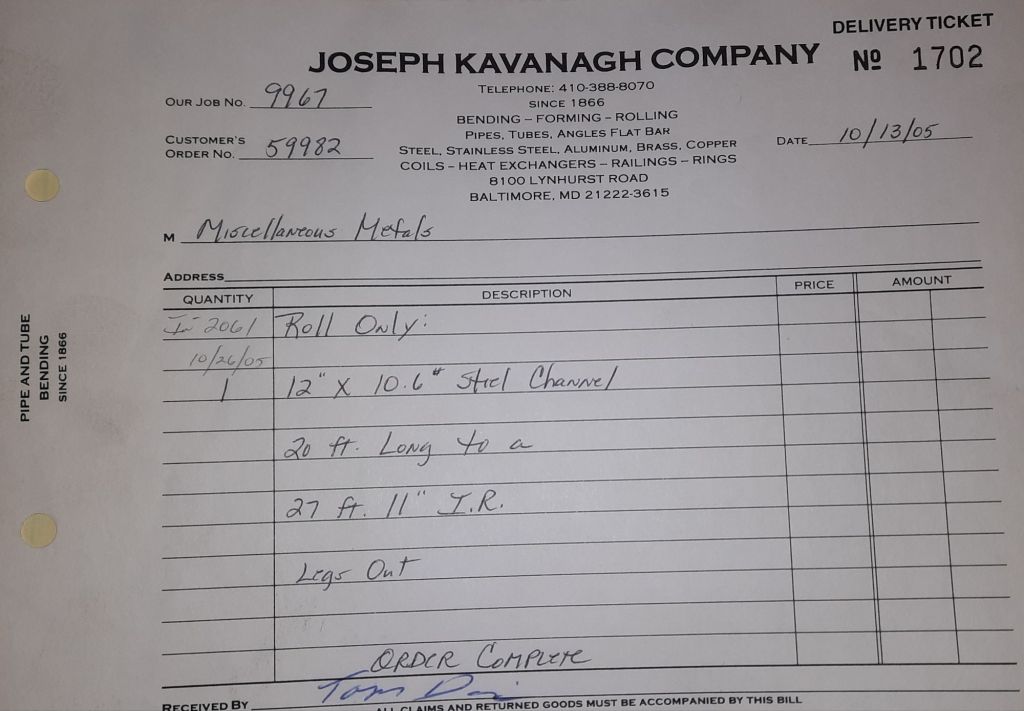 DELIVERY TICKET
JOSEPH KAVANAGH COMPANY
Nº 1702
TELEPHONE: 410-388-8070
SINCE 1866
BENDING – FORMING – ROLLING
PIPES, TUBES, ANGLES FLAT BAR
STEEL, STAINLESS STEEL, ALUMINUM, BRASS, COPPER
COILS – HEAT EXCHANGERS – RAILINGS – RINGS
8100 LYNHURST ROAD
BALTIMORE, MD 21222-3615
OUR JOB NO. 9967
CUSTOMER'S
ORDER NO. 59982
DATE 10/13/05
M Miscellaneous Metals
ADDRESS
QUANTITY DESCRIPTION PRICE AMOUNT
2061 Roll Only:
10/26/05
1 12" X 10.6# Steel Channel
20 ft. Long to a
27 ft. 11" I.R.
Legs Out
ORDER COMPLETE
RECEIVED BY Tom
ALL CLAIMS AND RETURNED GOODS MUST BE ACCOMPANIED BY THIS BILL
PIPE AND TUBE
BENDING
SINCE 1866